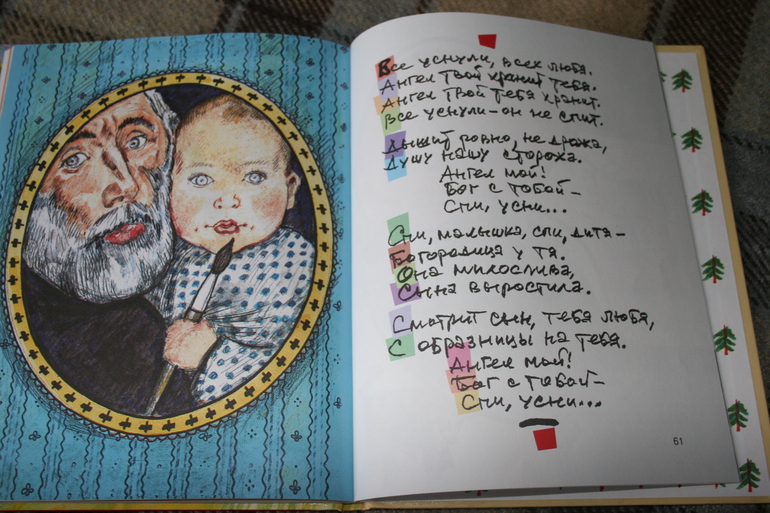 Все уснули, всех любя.
Ангел твой хранит тебя.
Ангел твой тебя хранит.
Все уснули – он не спит.
Дышит ровно, не дрожа,
Душу нашу сторожа.
Ангел мой!
Бог с тобой –
Спи, усни...
Спи, малышка, спи, дитя –
Богородица у тя.
Она милостива,
Сына выростила.
Смотрит сын, тебя любя,
С образницы на тебя.
Ангел мой!
Бог с тобой –
Спи, усни...
61